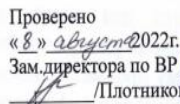 Проверено
«8» августа 2022г.
Зам.директора по ВР
/Плотнико